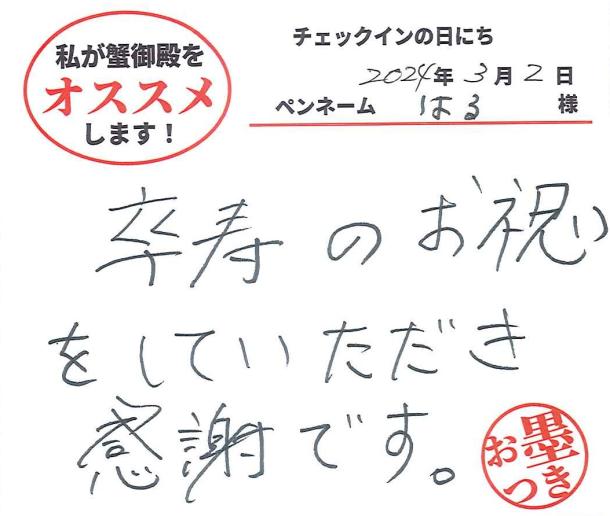 私が蟹御殿を
オススメ
します！
チェックインの日にち
2024年 3月 2日
ペンネーム はる 様
卒寿のお祝い
をしていただき
感謝です。
お墨つき